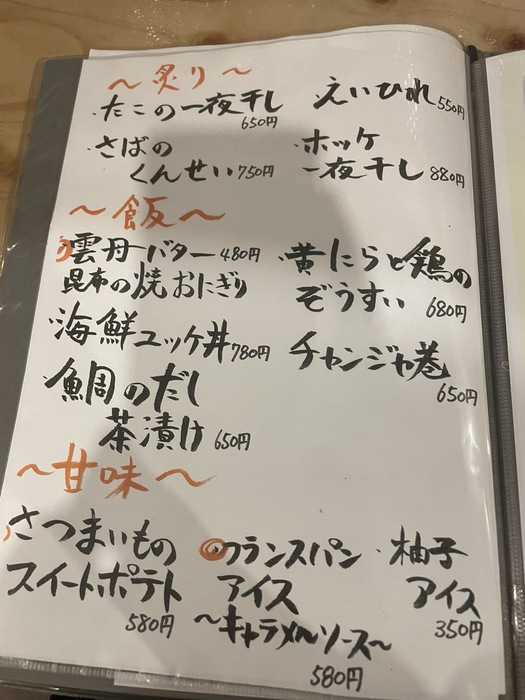 〜炙り〜
・たこの一夜干し 650円
えいひれ 550円
・さばの
くんせい 750円
・ホッケ
一夜干し 880円
〜飯〜
雲丹バター 480円
昆布の焼おにぎり
・黄にらと鶏の
ぞうすい 680円
・海鮮ユッケ丼 780円
チャンジャ巻 650円
・鯛のだし
茶漬け 650円
〜甘味〜
さつまいもの
スイートポテト
580円
フランスパン
アイス
〜キャラメルソース〜
580円
・柚子
アイス
350円